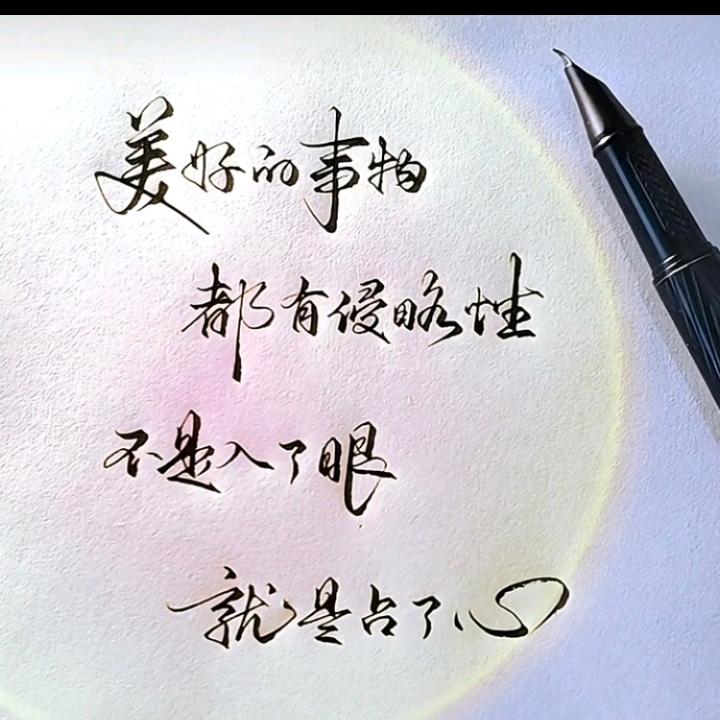 美好的事物
都有侵略性
不是入了眼
就是占了心